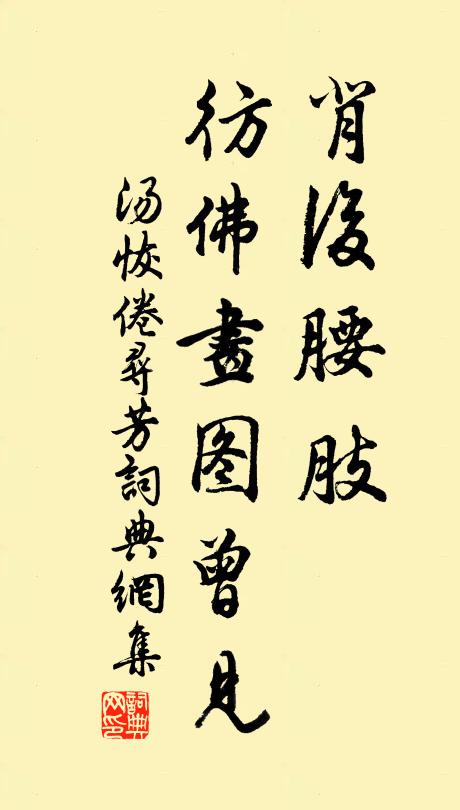 背後腰肢
彷佛畫图曾見
汤恢倦尋芳詞典網集
詞典网印